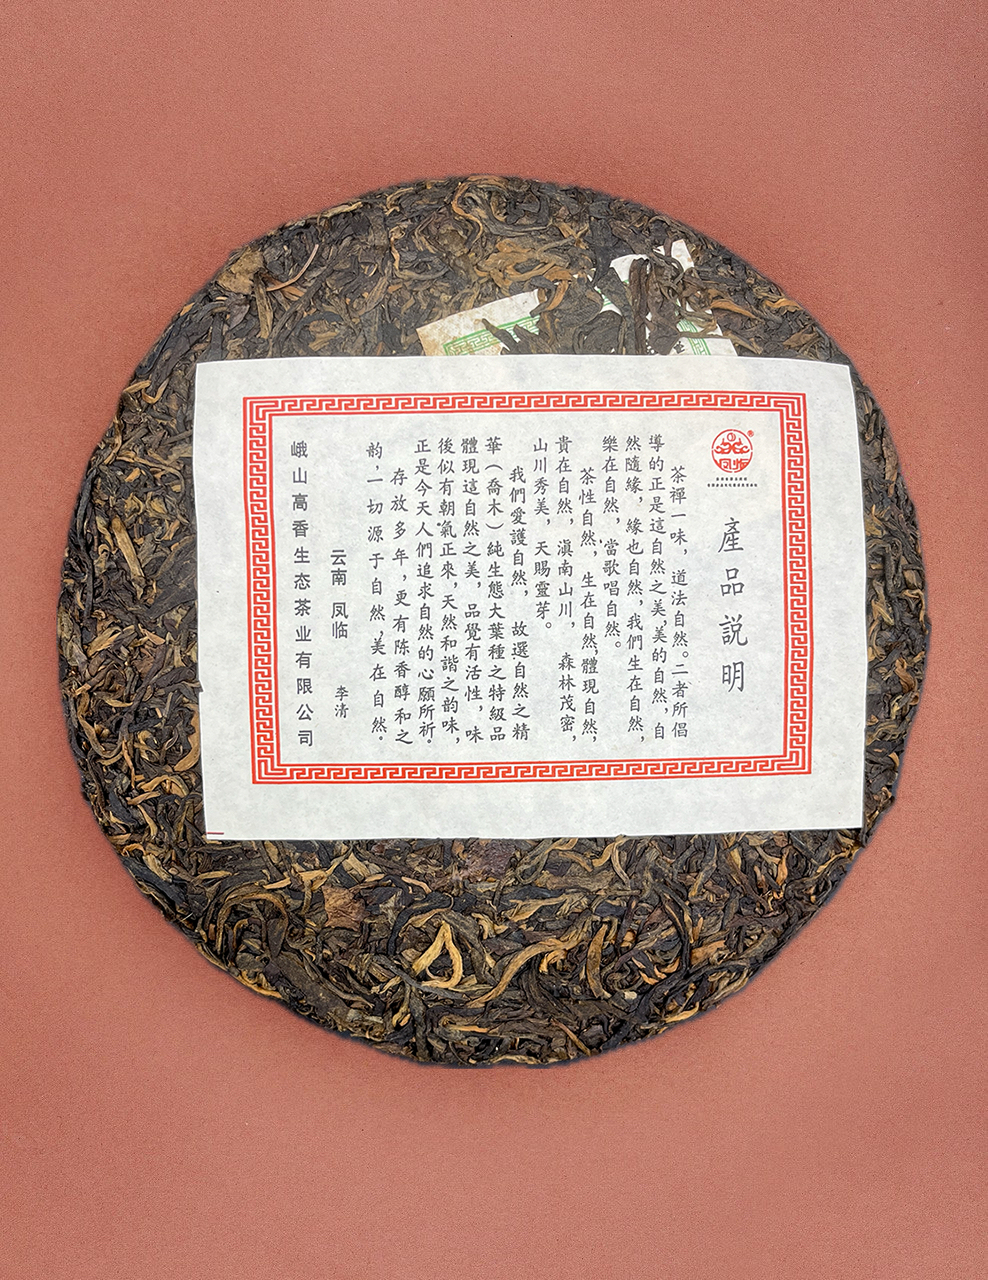 鳳临
®
產品説明
茶禪一味，道法自然。二者所倡
導的正是這自然之美，美的自然，自
然隨緣，緣也自然，我們生在自然，
樂在自然，當歌唱自然。
茶性自然，生在自然，體現自然，
貴在自然，滇南山川，森林茂密，
山川秀美，天賜靈芽。
我們愛護自然，故選自然之精
華（喬木）純生態大葉種之特級品
體現這自然之美，品覺有活性，味
後似有朝氣正來，天然和諧之韵味，
正是今天人們追求自然的心願所祈。
存放多年，更有陈香醇和之
韵，一切源于自然，美在自然。
云南 凤临 李清
峨山高香生态茶业有限公司